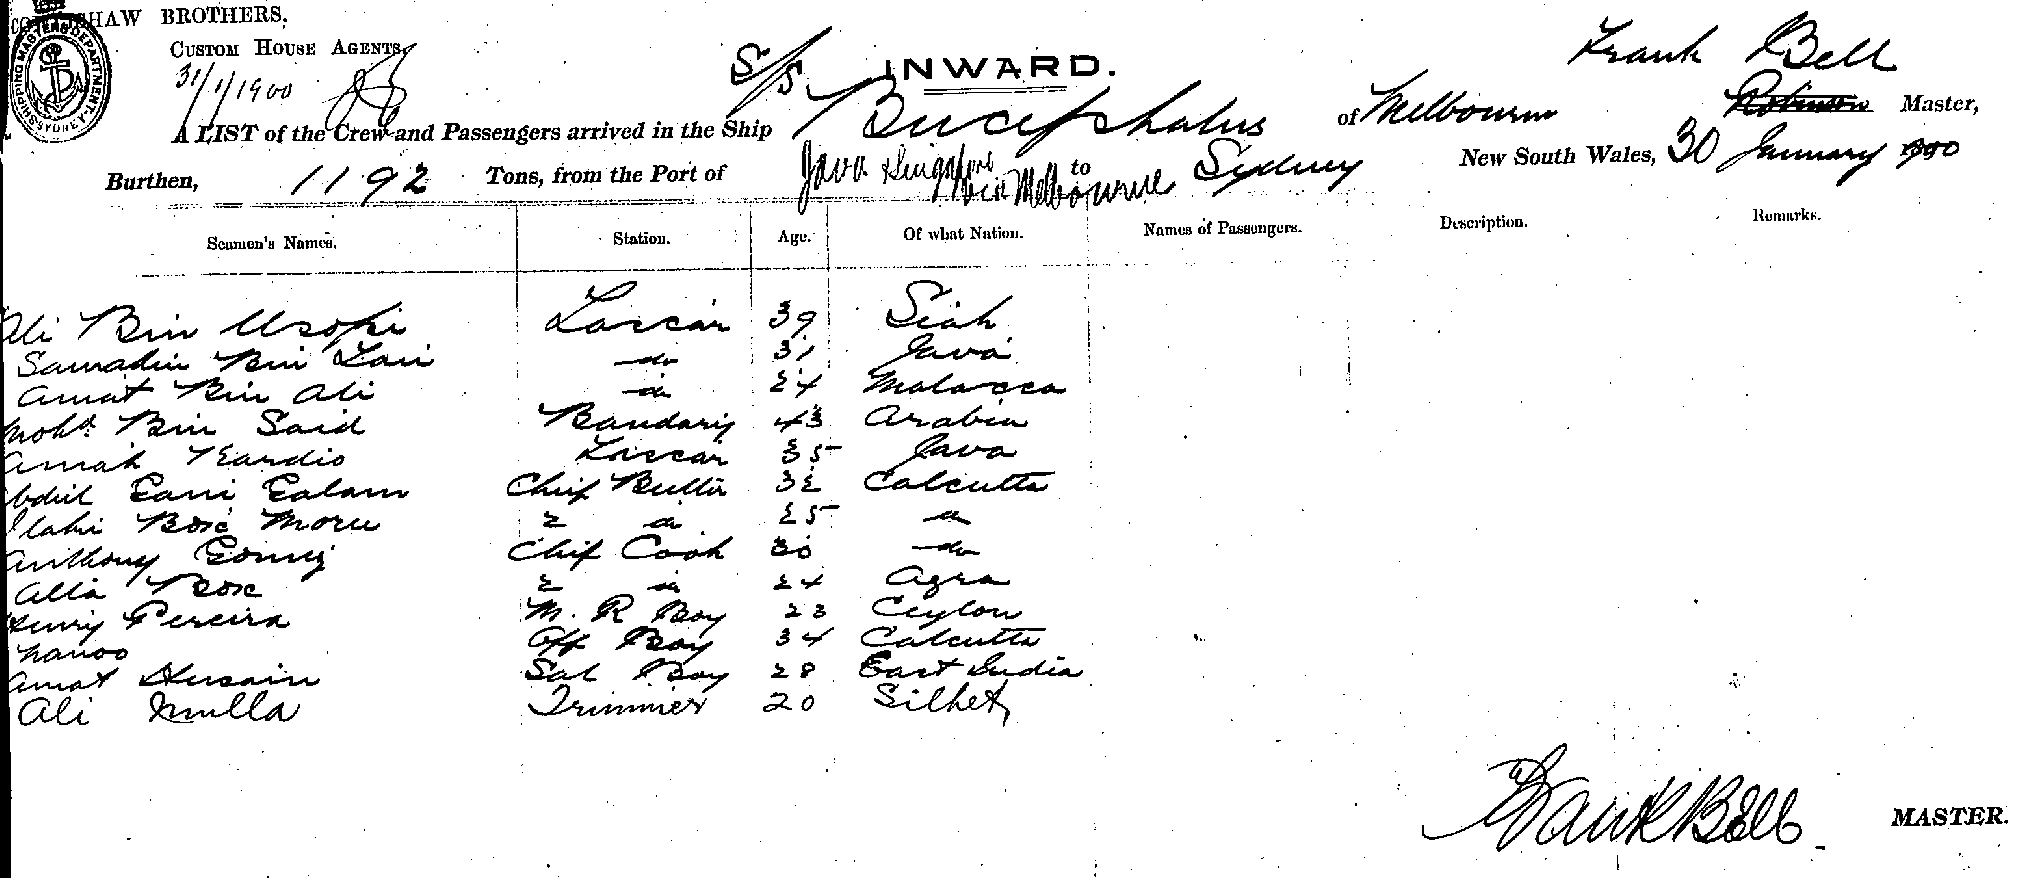 SHAW BROTHERS,
CUSTOM HOUSE AGENTS,
SHIPPING MASTERS DEPARTMENT SYDNEY
31/1/1900
INWARD.
Frank Bell
A LIST of the Crew and Passengers arrived in the Ship S/S. Bucephalus of Melbourne Robinson Master,
Burthen, 1192 Tons, from the Port of Java Singapore via Melbourne to Sydney New South Wales, 30 January 1900
Seamen's Names. Station. Age. Of what Nation. Names of Passengers. Description. Remarks.
Ali Bin Usopi Lascar 39 Siak
Samadin Bin Lari do 31 Java
Amat Bin Ali do 24 Malacca
Mohd. Bin Said Bandary 43 Arabia
Amah Kardio Lascar 35 Java
Gani Galam Chief Butler 32 Calcutta
Box 2 do 25 do
Anthony Gomez Chief Cook 30 do
Alla Box 2 do 24 Agra
Henry Pereira M. R Boy 23 Ceylon
Nanoo Off Boy 34 Calcutta
Amat Husain Sal Boy 28 East India
Ali Mulla Trimmer 20 Silhet
Frank Bell MASTER.